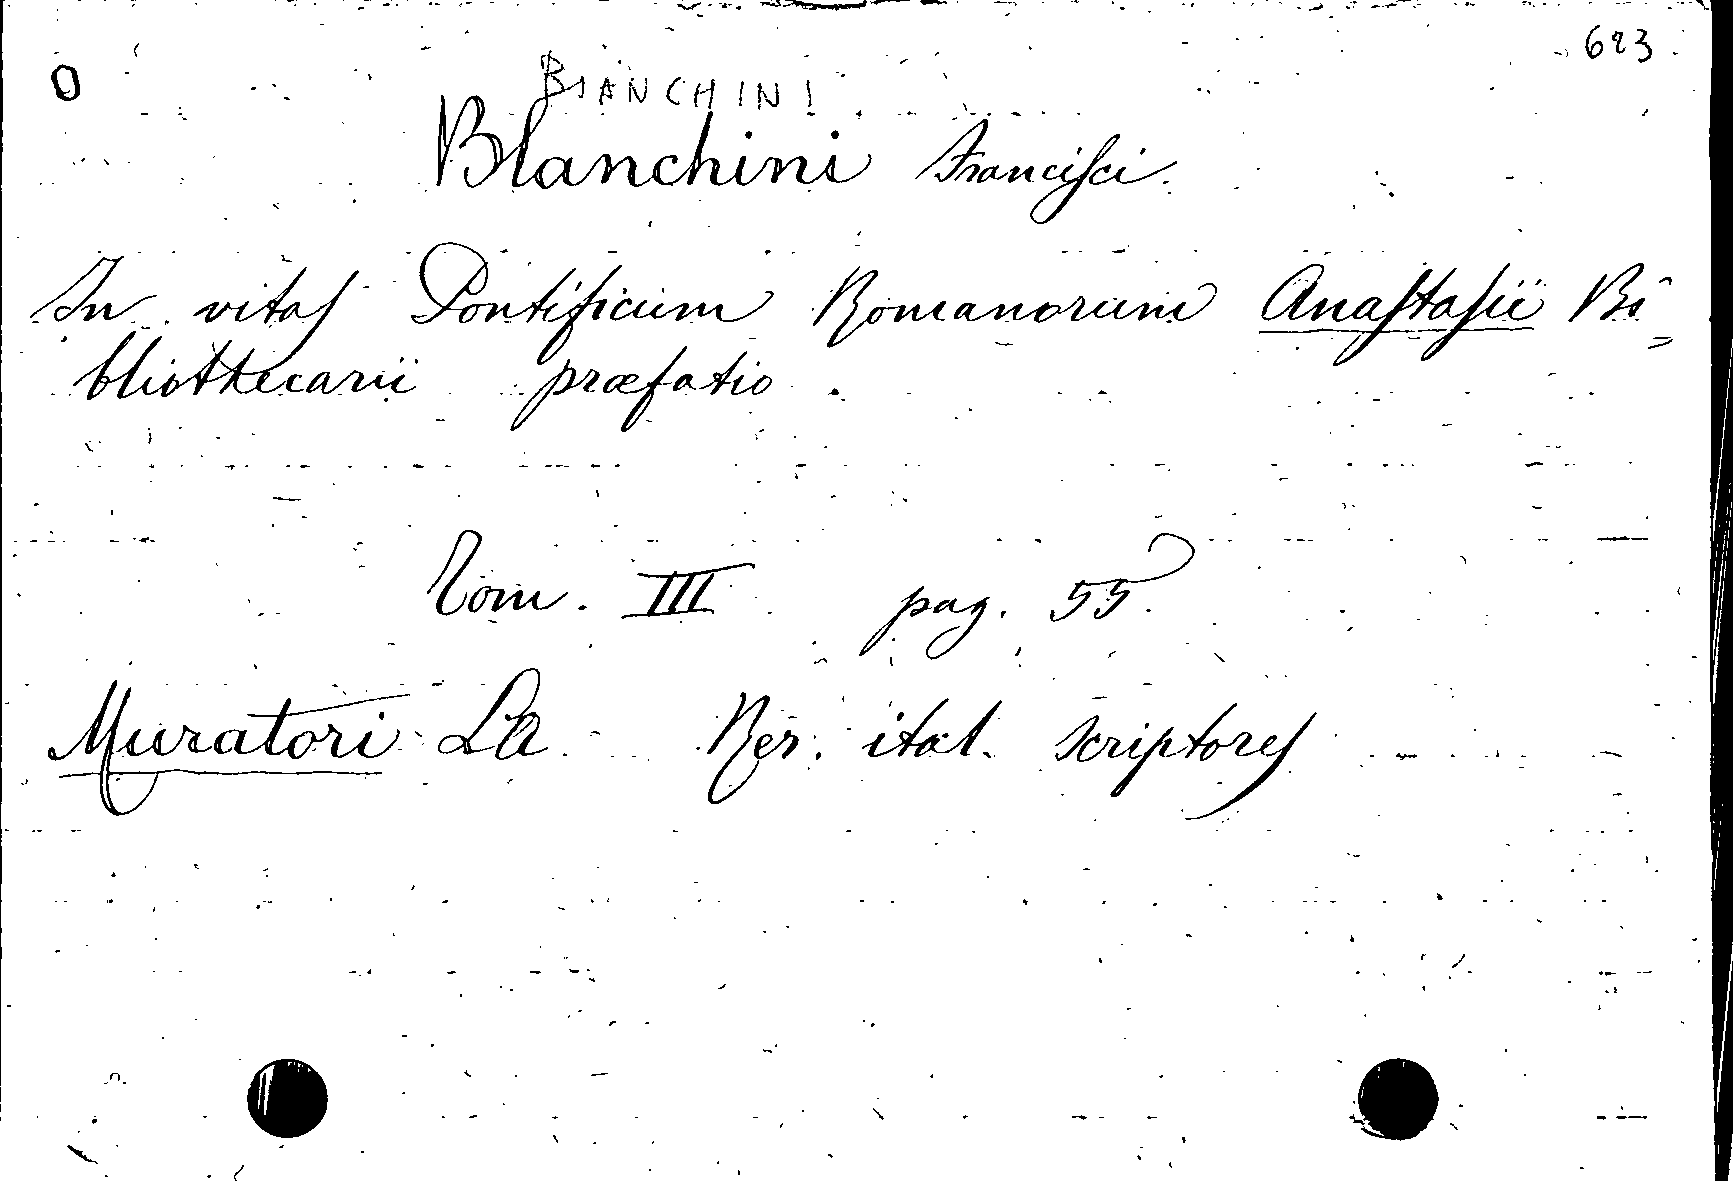 623
O
BIANCHINI
Blanchini Francisci
In vitas Pontificum Romanorum Anastasii Bi=
bliothecarii præfatio.
Tom. III pag. 55
Muratori La Rer. ital. scriptores